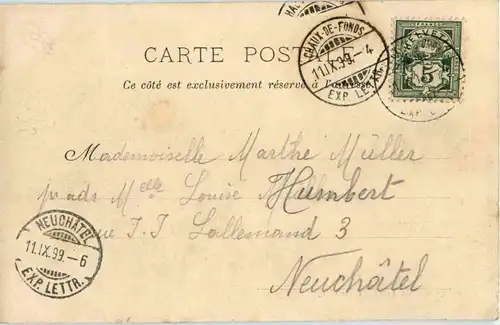 CARTE POST
CHAUX-DE-FONDS
11.IX.99.-4
EXP. LETTR.
HELVETIA
5
Ce côté est exclusivement réservé à l'adresse
Mademoiselle Marthe Müller
p. ads Melle Louise Humbert
rue J.J Lallemand 3
Neuchâtel
NEUCHÂTEL
11.IX.99.-6
EXP. LETTR.